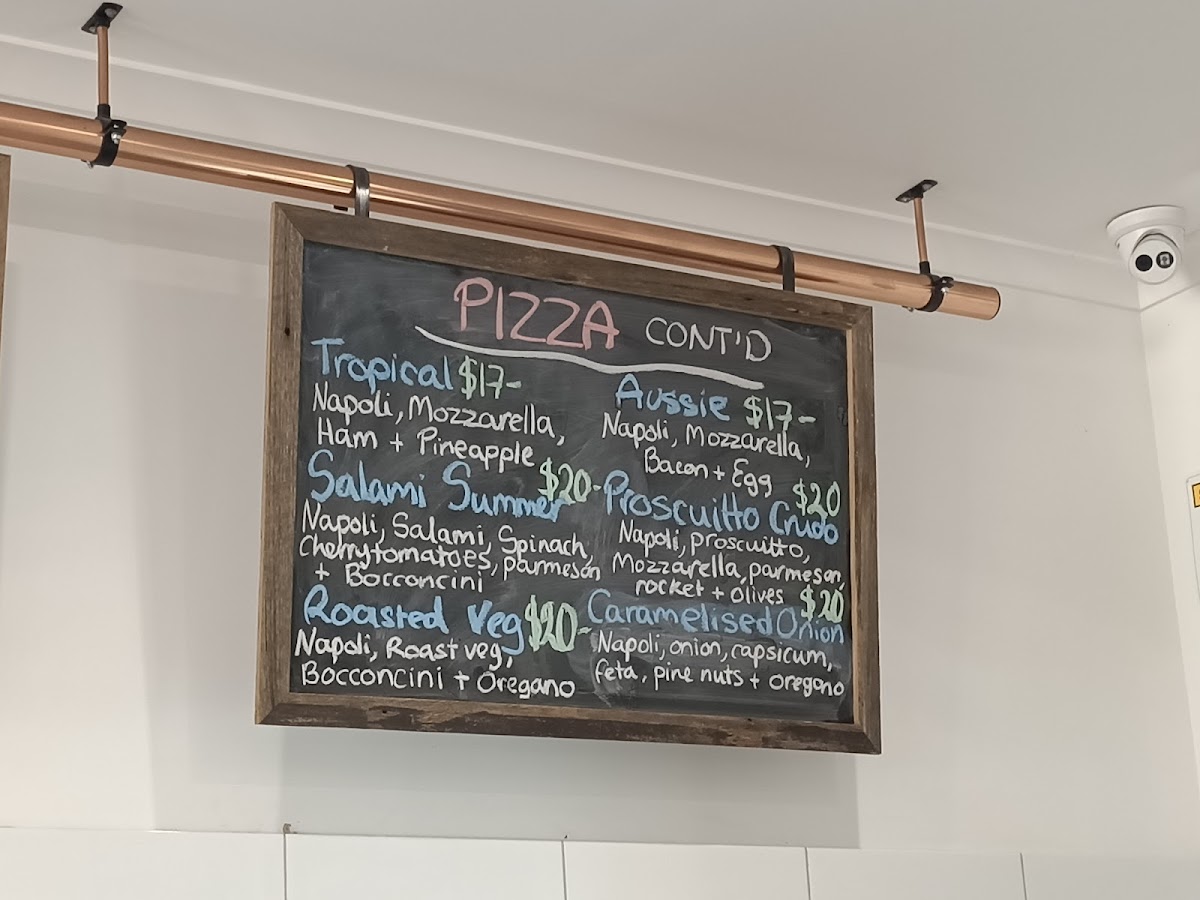 PIZZA CONT'D
Tropical $17-
Napoli, Mozzarella,
Ham + Pineapple
Salami Summer $20-
Napoli, Salami, Spinach,
Cherrytomatoes, parmesan
+ Bocconcini
Roasted Veg $20-
Napoli, Roast veg,
Bocconcini + Oregano
Aussie $17-
Napoli, Mozzarella,
Bacon + Egg
Proscuitto Crudo $20
Napoli, proscuitto,
Mozzarella, parmesan,
rocket + olives
Caramelised Onion $20
Napoli, onion, capsicum,
feta, pine nuts + oregano